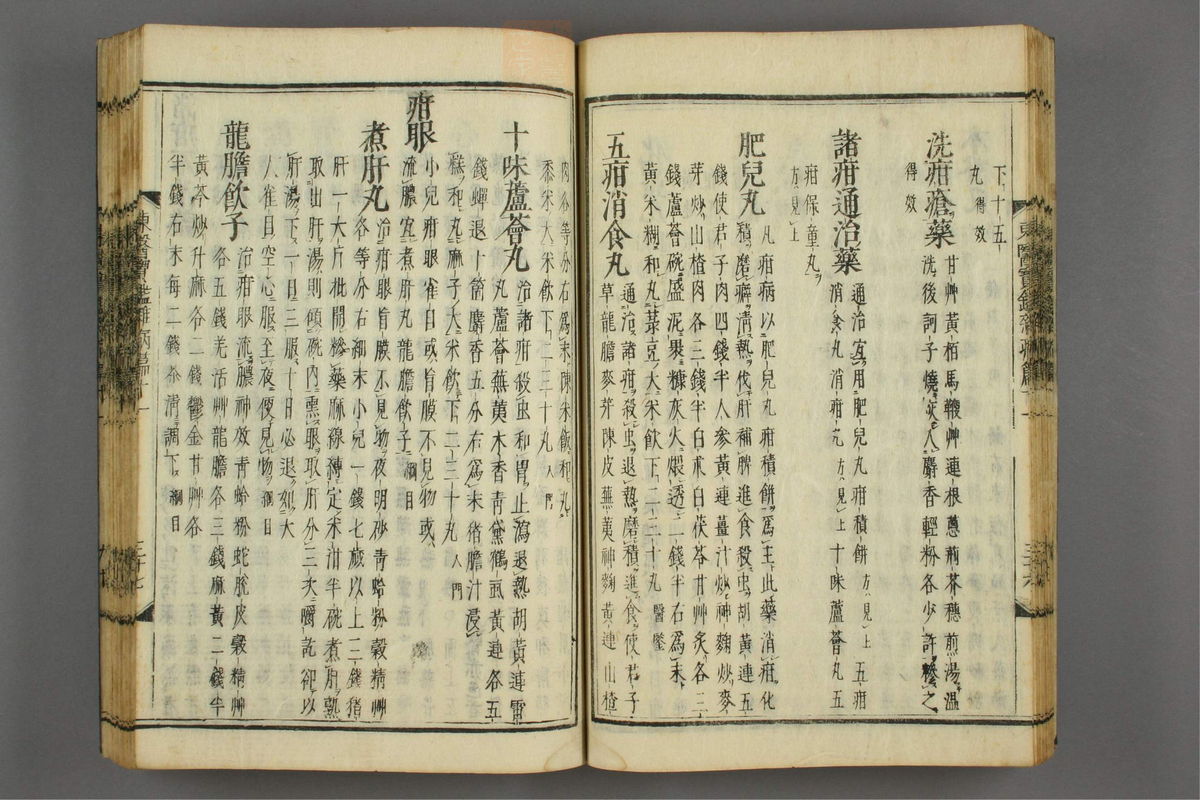 下十五
丸得效
洗疳瘡藥
甘艸黃栢馬鞭艸連根蔥荊芥穗煎湯溫
洗後訶子燒灰入麝香輕粉各少許摻之
得效
諸疳通治藥
通治宜用肥兒丸疳積餅方見上五疳
消食丸消疳元方見上十味蘆薈丸五
疳保童丸
方見上
肥兒丸
凡疳病以肥兒丸疳積餅爲主此藥消疳化
積磨癖淸熱伐肝補脾進食殺虫胡黃連五
錢使君子肉四錢半人參黃連薑汁炒神麴炒麥
芽炒山楂肉各三錢半白朮白茯苓甘艸炙各三
錢蘆薈碗盛泥裹糠灰火煨透二錢半右爲末
黃米糊和丸菉豆大米飮下二三十丸醫鑒
五疳消食丸
通治諸疳殺虫退熱磨積進食使君子
草龍膽麥芽陳皮蕪荑神麴黃連山楂
肉各等分右爲末陳米飮和丸
黍米大米飮下二三十丸入門
十味蘆薈丸
治諸疳殺虫和胃止瀉退熱胡黃連雷
丸蘆薈蕪荑木香靑黛鶴虱黃連各五
錢蟬退十箇麝香五分右爲末猪膽汁浸
糕和丸麻子大米飮下二三十丸入門
疳眼
小兒疳眼雀目或盲膜不見物或
流膿宜煮肝丸龍膽飮子綱目
煮肝丸
治疳眼盲膜不見物夜明砂靑蛤粉穀精艸
各等分右細末小兒一錢七歲以上二錢猪
肝一大片批開糝藥麻線縛定米泔半碗煮肝熟
取出肝湯則傾碗內熏眼取肝分三次嚼訖卻以
肝湯下一日三服十日必退如大
人雀目空心服至夜便見物綱目
龍膽飮子
治疳眼流膿神效靑蛤粉蛇脫皮穀精艸
各五錢羌活艸龍膽各三錢麻黃二錢半
黃芩炒升麻各二錢鬱金甘艸各
半錢右末每二錢茶淸調下綱目